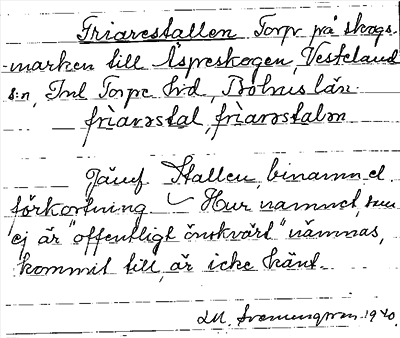 Friarestallen Torp på skogs-
marken till Äspreskogen, Västerlanda
s:n, Inl Torpe hd, Bohus län.
frìarəstal, frìarəstalən
Jämf Stallen, binamn el
förkortning – Hur namnet, som
ej är "offentligt önskvärt" nämnas,
kommit till, är icke känt.
1940.